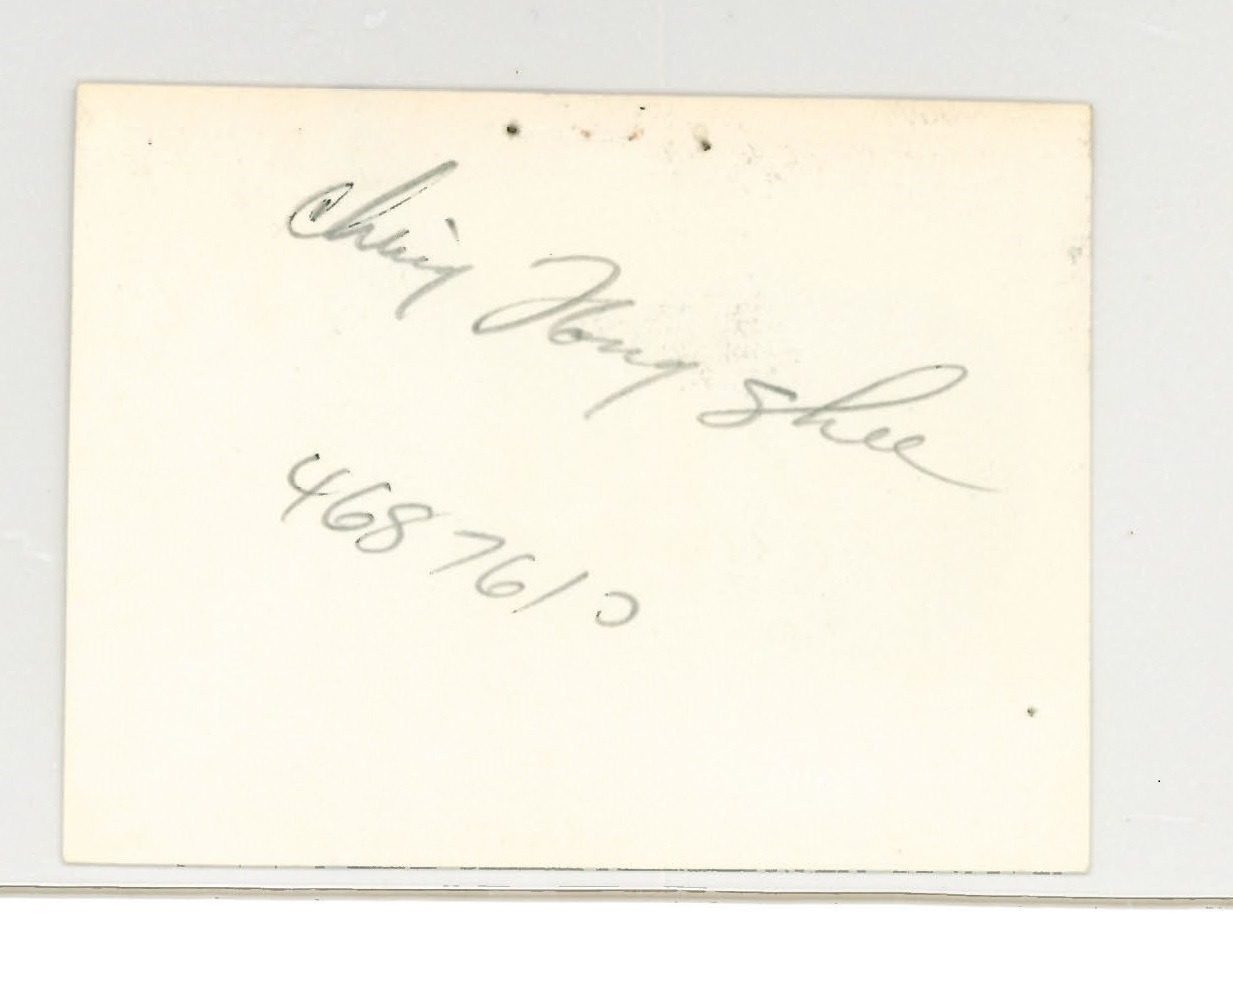 Ching Hong Shee
4687610